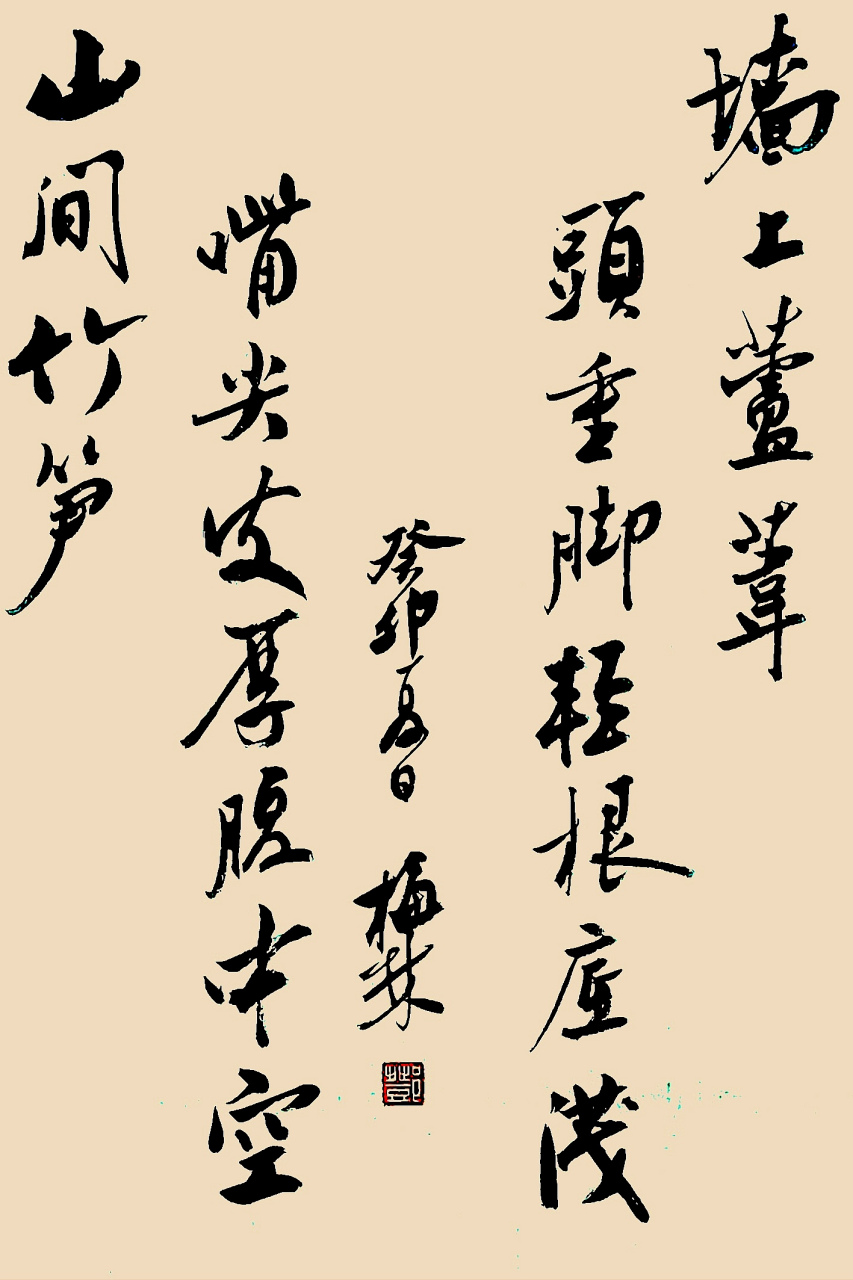 墙上蘆葦
頭重脚輕根底淺
山间竹笋
嘴尖皮厚腹中空
癸卯夏日 梅林
鄧